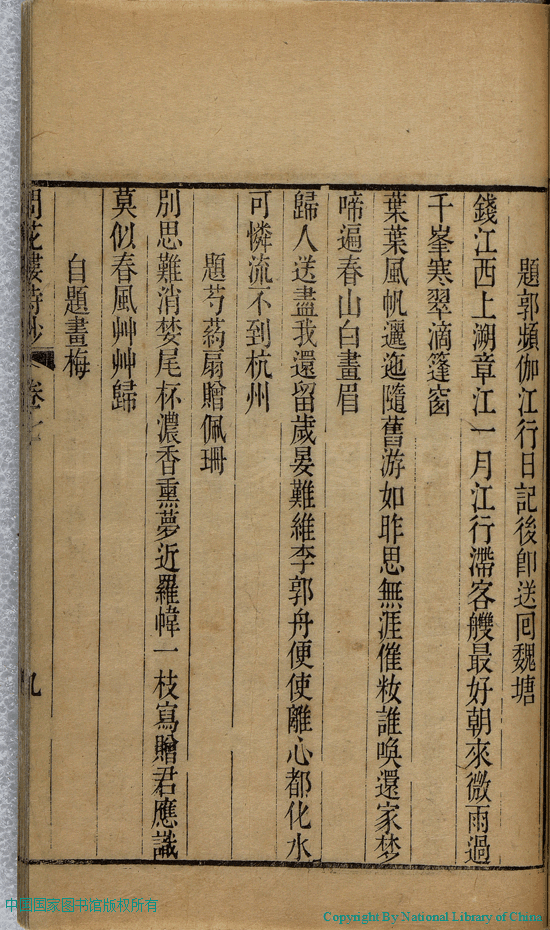 題郭頻伽江行日記後卽送囘魏塘
錢江西上溯章江一月江行滯客艭最好朝來微雨過
千峯寒翠滴篷窗
葉葉風帆邐迤隨舊游如昨思無涯催妝誰喚還家梦
啼遍春山白畫眉
歸人送盡我還留歲晏難維李郭舟便使離心都化水
可憐流不到杭州
題芍葯扇贈佩珊
別思難消婪尾杯濃香熏夢近羅幃一枝寫贈君應識
莫似春風艸艸歸
自題畫梅
問花樓詩鈔 卷七
九
中国国家图书馆版权所有
Copyright By National Library of China